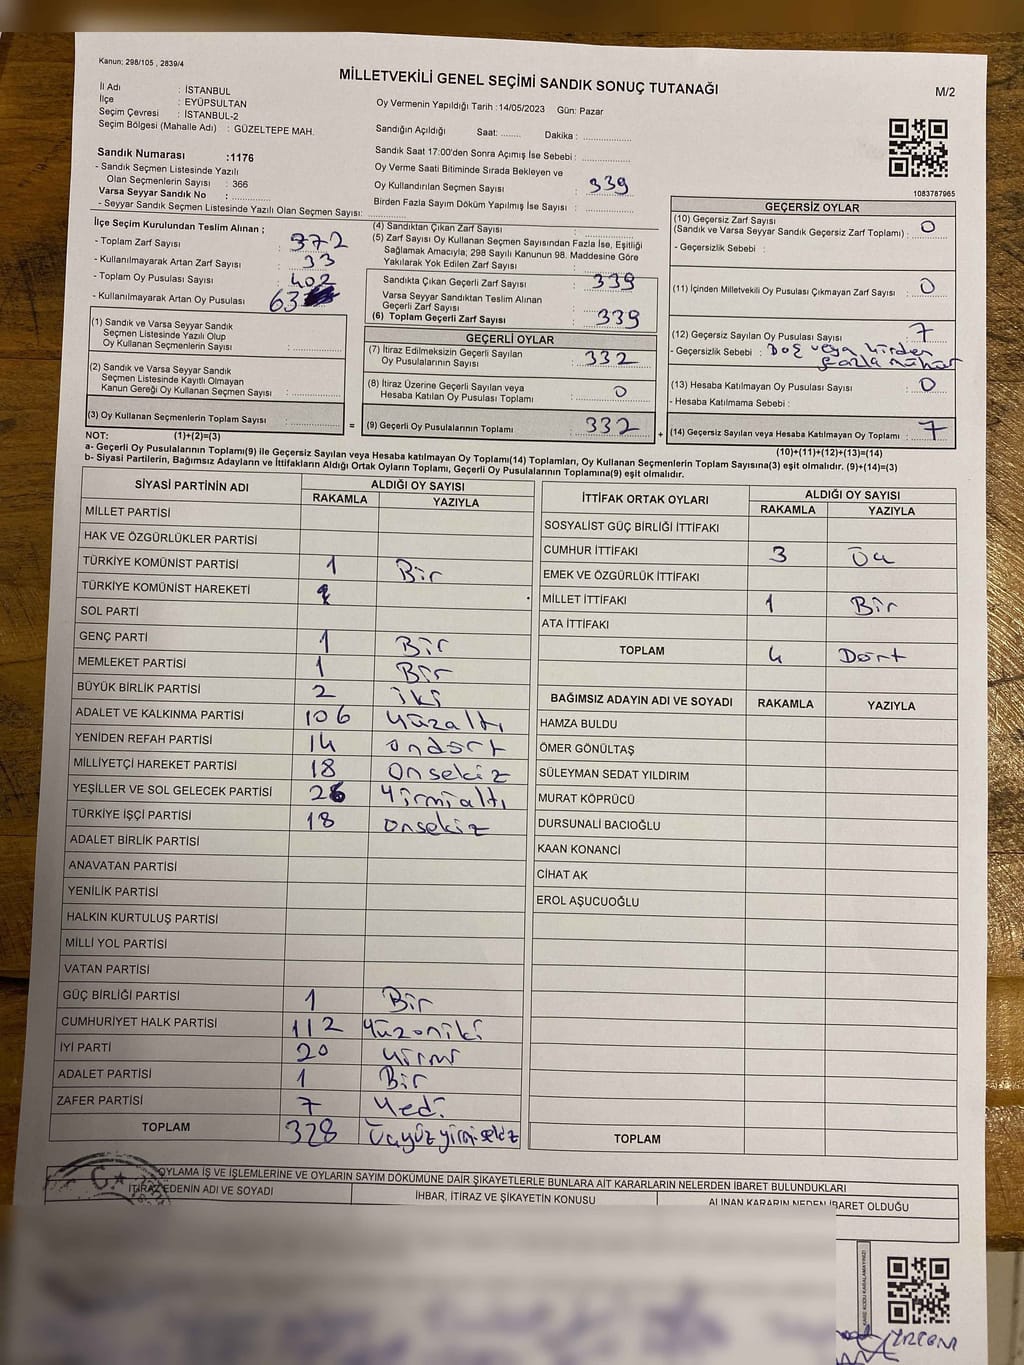 Kanun; 298/105 , 2839/4
MİLLETVEKİLİ GENEL SEÇİMİ SANDIK SONUÇ TUTANAĞI
M/2
İl Adı : İSTANBUL
İlçe : EYÜPSULTAN
Seçim Çevresi : İSTANBUL-2
Seçim Bölgesi (Mahalle Adı) : GÜZELTEPE MAH.
Oy Vermenin Yapıldığı Tarih :14/05/2023 Gün: Pazar
Sandığın Açıldığı Saat: ........ Dakika : ...............
Sandık Saat 17:00'den Sonra Açımış İse Sebebi : ...............
Oy Verme Saati Bitiminde Sırada Bekleyen ve
Oy Kullandırılan Seçmen Sayısı : 339
Birden Fazla Sayım Döküm Yapılmış İse Sayısı : ...............
1083787965
Sandık Numarası :1176
- Sandık Seçmen Listesinde Yazılı
Olan Seçmenlerin Sayısı : 366
Varsa Seyyar Sandık No : ...............
- Seyyar Sandık Seçmen Listesinde Yazılı Olan Seçmen Sayısı: ...............
İlçe Seçim Kurulundan Teslim Alınan ;
- Toplam Zarf Sayısı : 372
- Kullanılmayarak Artan Zarf Sayısı : 33
- Toplam Oy Pusulası Sayısı : 402
- Kullanılmayarak Artan Oy Pusulası 63
(1) Sandık ve Varsa Seyyar Sandık
Seçmen Listesinde Yazılı Olup
Oy Kullanan Seçmenlerin Sayısı : ...............
(2) Sandık ve Varsa Seyyar Sandık
Seçmen Listesinde Kayıtlı Olmayan
Kanun Gereği Oy Kullanan Seçmen Sayısı : ...............
(3) Oy Kullanan Seçmenlerin Toplam Sayısı : ...............
(4) Sandıktan Çıkan Zarf Sayısı : ...............
(5) Zarf Sayısı Oy Kullanan Seçmen Sayısından Fazla İse, Eşitliği
Sağlamak Amacıyla; 298 Sayılı Kanunun 98. Maddesine Göre
Yakılarak Yok Edilen Zarf Sayısı : ...............
Sandıkta Çıkan Geçerli Zarf Sayısı : 339
Varsa Seyyar Sandıktan Teslim Alınan
Geçerli Zarf Sayısı
(6) Toplam Geçerli Zarf Sayısı : 339
GEÇERLİ OYLAR
(7) İtiraz Edilmeksizin Geçerli Sayılan
Oy Pusulalarının Sayısı : 332
(8) İtiraz Üzerine Geçerli Sayılan veya
Hesaba Katılan Oy Pusulası Toplamı : 0
= (9) Geçerli Oy Pusulalarının Toplamı : 332 +
GEÇERSİZ OYLAR
(10) Geçersiz Zarf Sayısı
(Sandık ve Varsa Seyyar Sandık Geçersiz Zarf Toplamı) : 0
- Geçersizlik Sebebi :
(11) İçinden Milletvekili Oy Pusulası Çıkmayan Zarf Sayısı : 0
(12) Geçersiz Sayılan Oy Pusulası Sayısı : 7
- Geçersizlik Sebebi : Boş veya birden
fazla mühür
(13) Hesaba Katılmayan Oy Pusulası Sayısı : 0
- Hesaba Katılmama Sebebi :
(14) Geçersiz Sayılan veya Hesaba Katılmayan Oy Toplamı : 7
NOT: (1)+(2)=(3)
(10)+(11)+(12)+(13)=(14)
a- Geçerli Oy Pusulalarının Toplamı(9) ile Geçersiz Sayılan veya Hesaba katılmayan Oy Toplamı(14) Toplamları, Oy Kullanan Seçmenlerin Toplam Sayısına(3) eşit olmalıdır. (9)+(14)=(3)
b- Siyasi Partilerin, Bağımsız Adayların ve İttifakların Aldığı Ortak Oyların Toplamı, Geçerli Oy Pusulalarının Toplamına(9) eşit olmalıdır.
SİYASİ PARTİNİN ADI ALDIĞI OY SAYISI
RAKAMLA YAZIYLA
MİLLET PARTİSİ
HAK VE ÖZGÜRLÜKLER PARTİSİ
TÜRKİYE KOMÜNİST PARTİSİ 1 Bir
TÜRKİYE KOMÜNİST HAREKETİ
SOL PARTİ
GENÇ PARTİ 1 Bir
MEMLEKET PARTİSİ 1 Bir
BÜYÜK BİRLİK PARTİSİ 2 iki
ADALET VE KALKINMA PARTİSİ 106 Yüzaltı
YENİDEN REFAH PARTİSİ 14 ondört
MİLLİYETÇİ HAREKET PARTİSİ 18 onsekiz
YEŞİLLER VE SOL GELECEK PARTİSİ 26 Yirmialtı
TÜRKİYE İŞÇİ PARTİSİ 18 onsekiz
ADALET BİRLİK PARTİSİ
ANAVATAN PARTİSİ
YENİLİK PARTİSİ
HALKIN KURTULUŞ PARTİSİ
MİLLİ YOL PARTİSİ
VATAN PARTİSİ
GÜÇ BİRLİĞİ PARTİSİ 1 Bir
CUMHURİYET HALK PARTİSİ 112 Yüzoniki
İYİ PARTİ 20 yirmi
ADALET PARTİSİ 1 Bir
ZAFER PARTİSİ 7 Yedi
TOPLAM 328 Üçyüzyirmisekiz
İTTİFAK ORTAK OYLARI ALDIĞI OY SAYISI
RAKAMLA YAZIYLA
SOSYALİST GÜÇ BİRLİĞİ İTTİFAKI
CUMHUR İTTİFAKI 3 Üç
EMEK VE ÖZGÜRLÜK İTTİFAKI
MİLLET İTTİFAKI 1 Bir
ATA İTTİFAKI
TOPLAM 4 Dört
BAĞIMSIZ ADAYIN ADI VE SOYADI RAKAMLA YAZIYLA
HAMZA BULDU
ÖMER GÖNÜLTAŞ
SÜLEYMAN SEDAT YILDIRIM
MURAT KÖPRÜCÜ
DURSUNALİ BACIOĞLU
KAAN KONANCİ
CİHAT AK
EROL AŞUCUOĞLU
TOPLAM
OYLAMA İŞ VE İŞLEMLERİNE VE OYLARIN SAYIM DÖKÜMÜNE DAİR ŞİKAYETLERLE BUNLARA AİT KARARLARIN NELERDEN İBARET BULUNDUKLARI
İTİRAZ EDENİN ADI VE SOYADI İHBAR, İTİRAZ VE ŞİKAYETİN KONUSU ALINAN KARARIN NEDEN İBARET OLDUĞU
KARE KODU KARALAMAYINIZ!